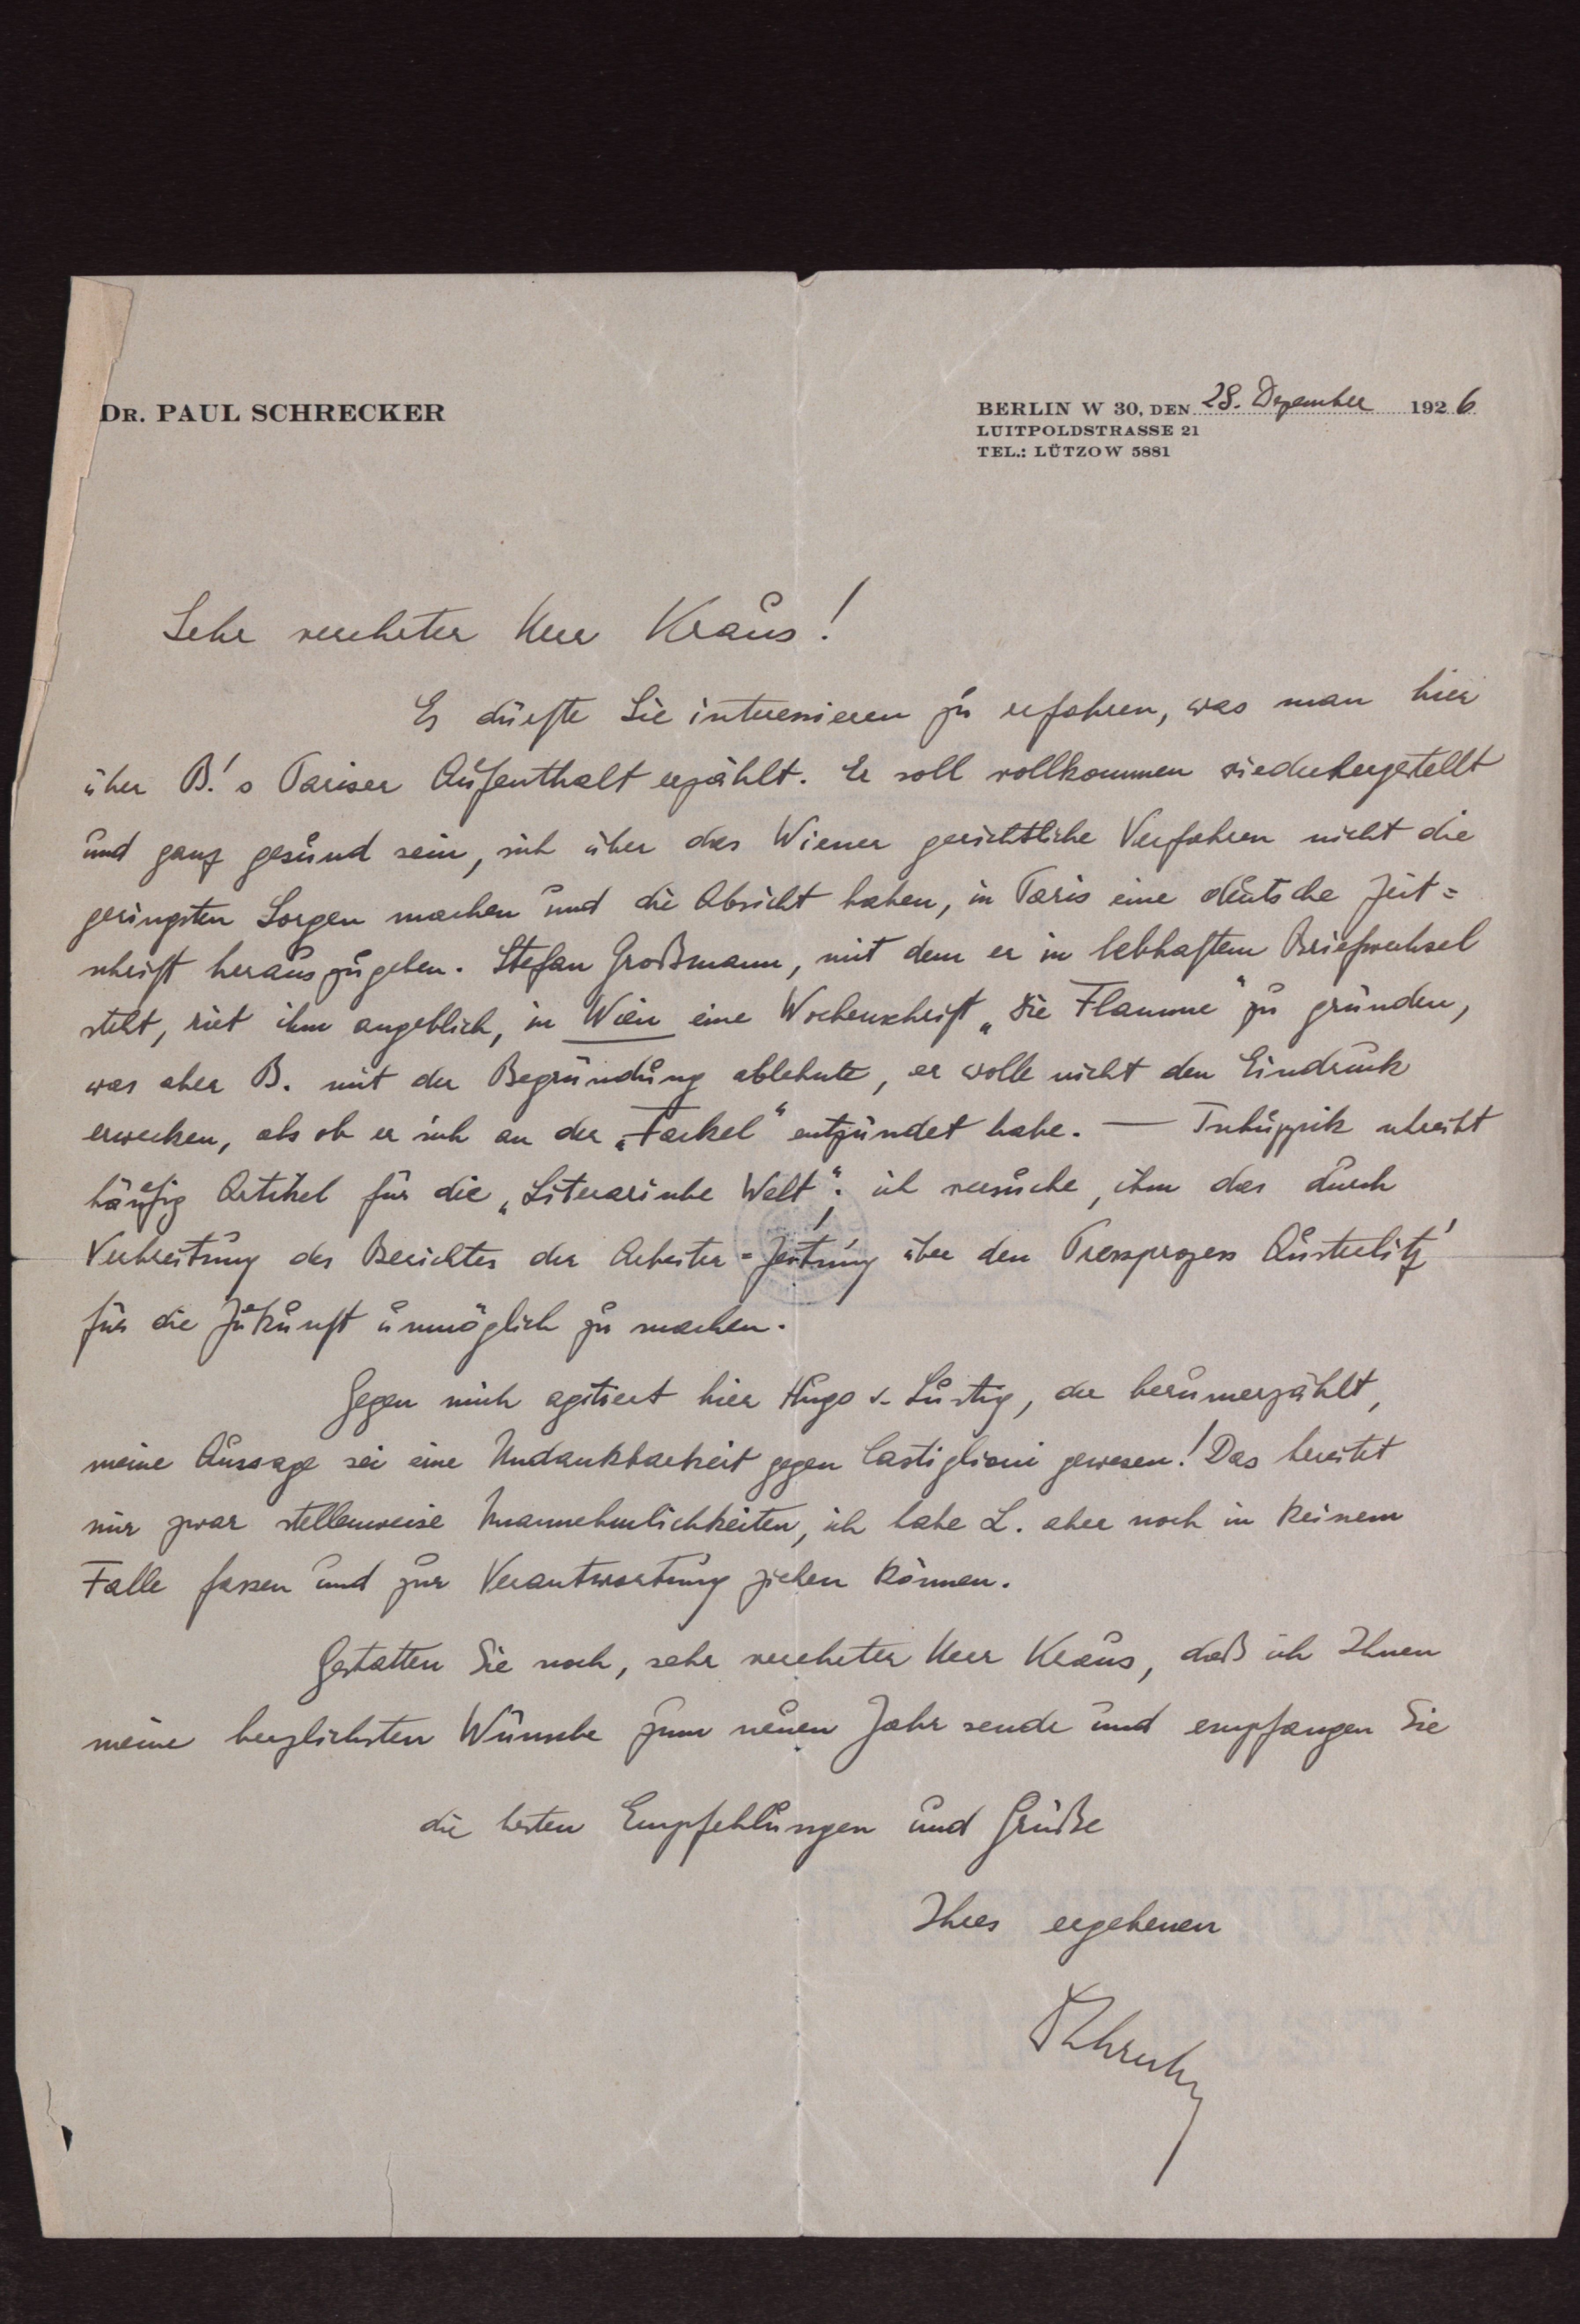 DR. PAUL SCHRECKER
BERLIN W 30, DEN 28. Dezember 1926
LUITPOLDSTRASSE 21
TEL.: LÜTZOW 5881
Sehr verehrter Herr Kraus!
Es dürfte Sie interessieren zu erfahren, was man hier
über B.'s Pariser Aufenthalt erzählt. Er soll vollkommen wiederhergestellt
und ganz gesund sein, sich über das Wiener gerichtliche Verfahren nicht die
geringsten Sorgen machen und die Absicht haben, in Paris eine deutsche Zeit=
schrift herauszugeben. Stefan Großmann, mit dem er in lebhaftem Briefwechsel
steht, riet ihm angeblich, in Wien eine Wochenschrift „Die Flamme“ zu gründen,
was aber B. mit der Begründung ablehnte, er wolle nicht den Eindruck
erwecken, als ob er sich an der „Fackel“ entzündet habe. — Tschuppik schreibt
häufig Artikel für die „Literarische Welt“; ich versuche, ihm das durch
Verbreitung des Berichtes der Arbeiter=Zeitung über den Pressprozess Austerlitz'
für die Zukunft unmöglich zu machen.
Gegen mich agitiert hier Hugo v. Lustig, der herumerzählt,
meine Aussage sei eine Undankbarkeit gegen Castiglioni gewesen! Das bereitet
mir zwar stellenweise Unannehmlichkeiten, ich habe L. aber noch in keinem
Falle fassen und zur Verantwortung ziehen können.
Gestatten Sie noch, sehr verehrter Herr Kraus, daß ich Ihnen
meine herzlichsten Wünsche zum neuen Jahr sende und empfangen Sie
die besten Empfehlungen und Grüße
Ihres ergebenen
PSchrecker